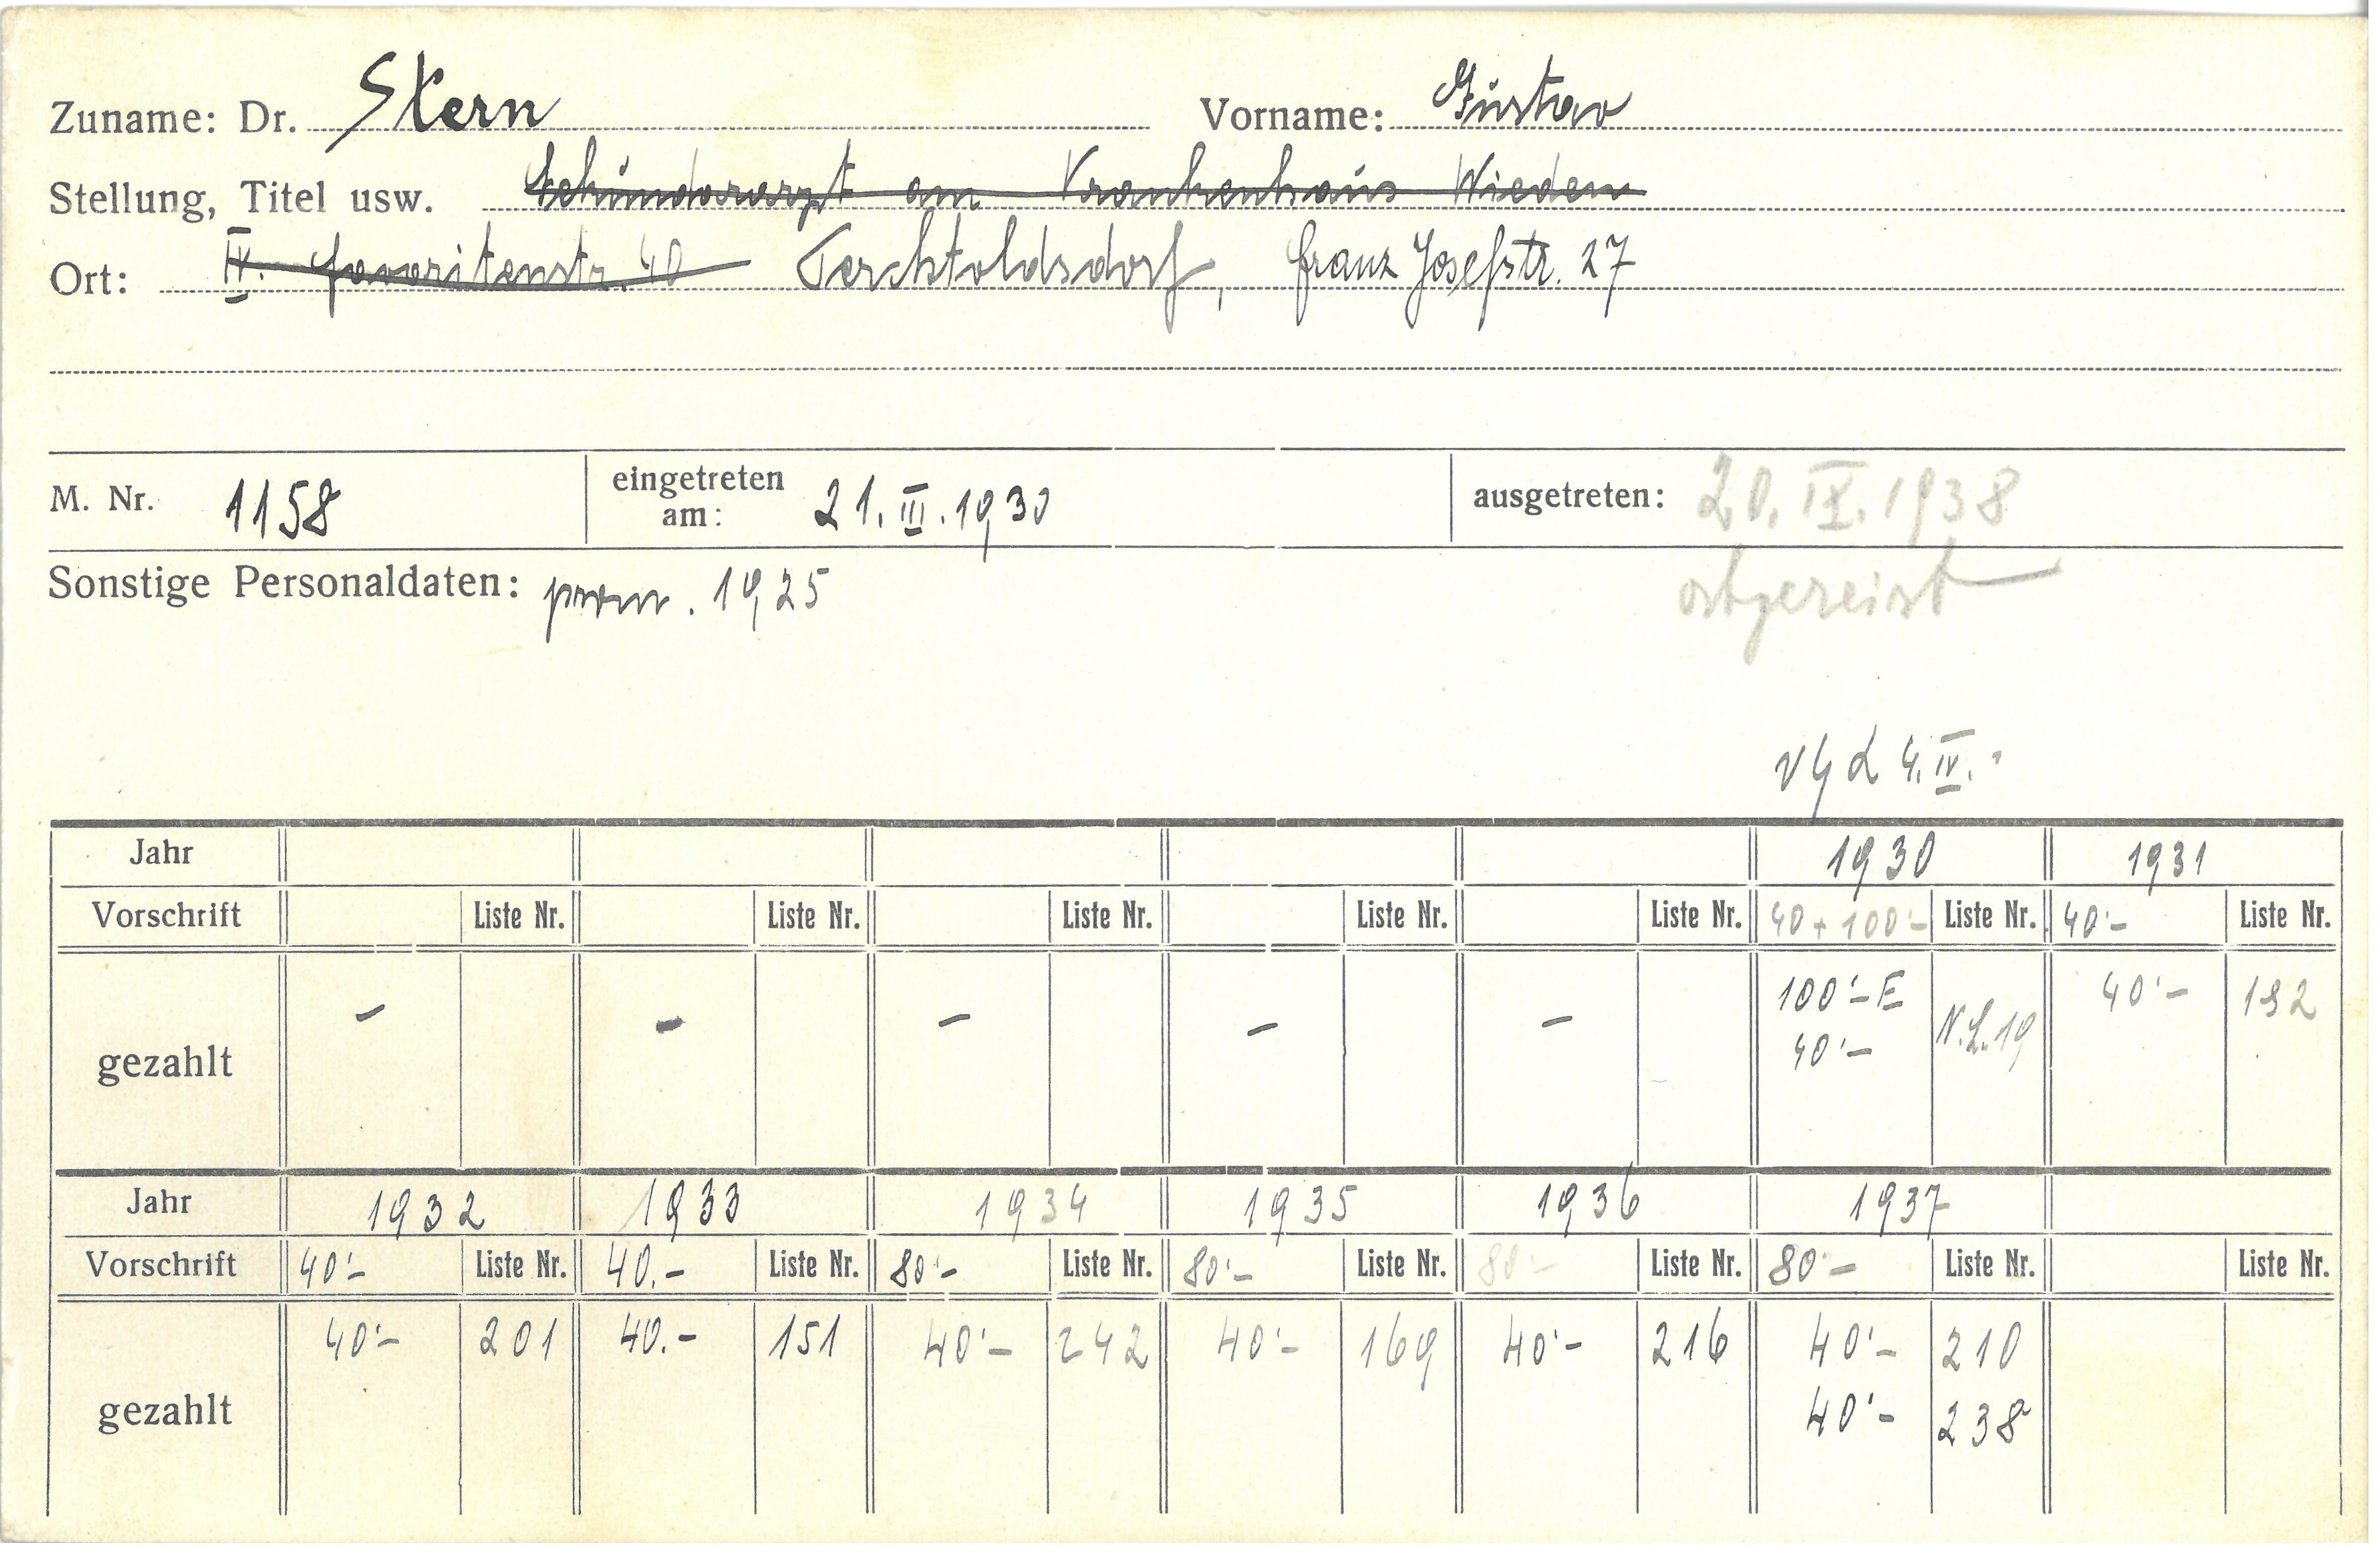 Zuname: Dr. Stern Vorname: Gustav
Stellung, Titel usw. Sekundararzt am Krankenhaus Wieden
Ort: IV. Favoritenstr. 40 Perchtoldsdorf, Franz Josefstr. 27
M. Nr. 1158 eingetreten am: 21. III. 1930 ausgetreten: 20. IX. 1938
Sonstige Personaldaten: prom. 1925
4. IV.
Jahr 1930 1931
Vorschrift Liste Nr. Liste Nr. Liste Nr. Liste Nr. Liste Nr. 40 + 100'- Liste Nr. 40'- Liste Nr.
gezahlt - - - - - 100'- E N.L. 19 40'- 192
40'-
Jahr 1932 1933 1934 1935 1936 1937
Vorschrift 40'- Liste Nr. 40.- Liste Nr. 80'- Liste Nr. 80'- Liste Nr. 80'- Liste Nr. 80'- Liste Nr. Liste Nr.
gezahlt 40'- 201 40.- 151 40'- 242 40'- 169 40'- 216 40'- 210
40'- 238